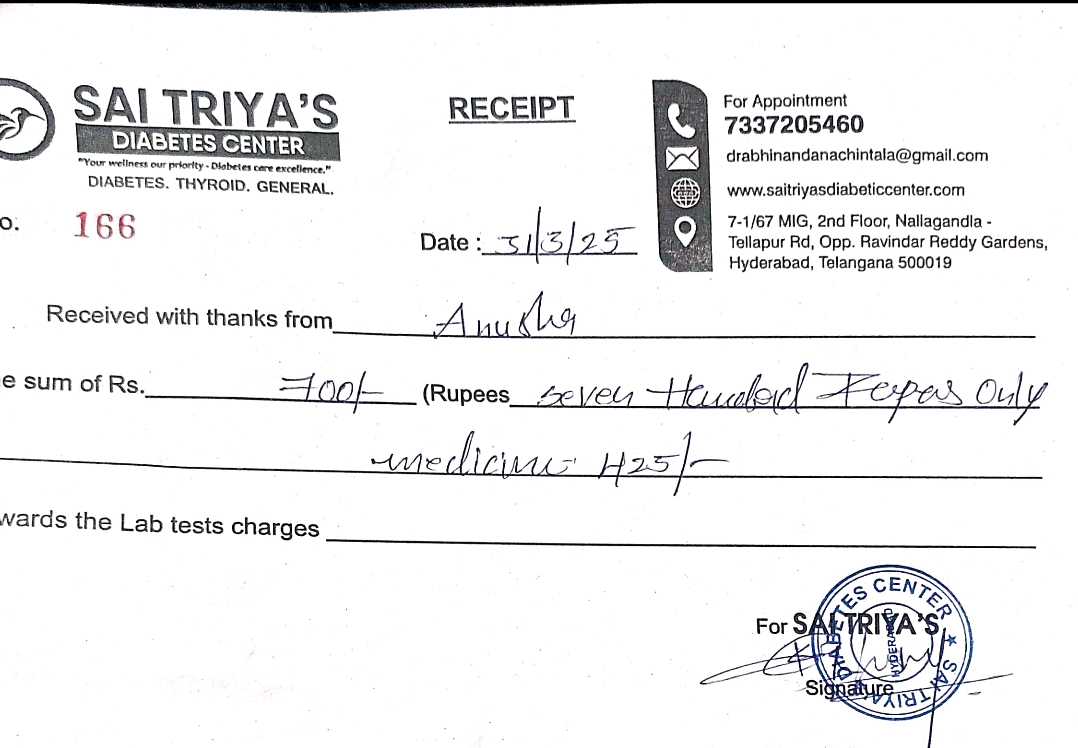 SAI TRIYA'S
DIABETES CENTER
"Your wellness our priority - Diabetes care excellence."
DIABETES. THYROID. GENERAL.
RECEIPT
For Appointment
7337205460
drabhinandanachintala@gmail.com
www.saitriyasdiabeticcenter.com
7-1/67 MIG, 2nd Floor, Nallagandla -
Tellapur Rd, Opp. Ravindar Reddy Gardens,
Hyderabad, Telangana 500019
o. 166
Date : 31/3/25
Received with thanks from Anusha
e sum of Rs. 700/- (Rupees seven Hundred Only
medicine 425/-
wards the Lab tests charges
For SAI TRIYA'S
Signature
SAI TRIYA DIABETES CENTER ★
HYDERABAD